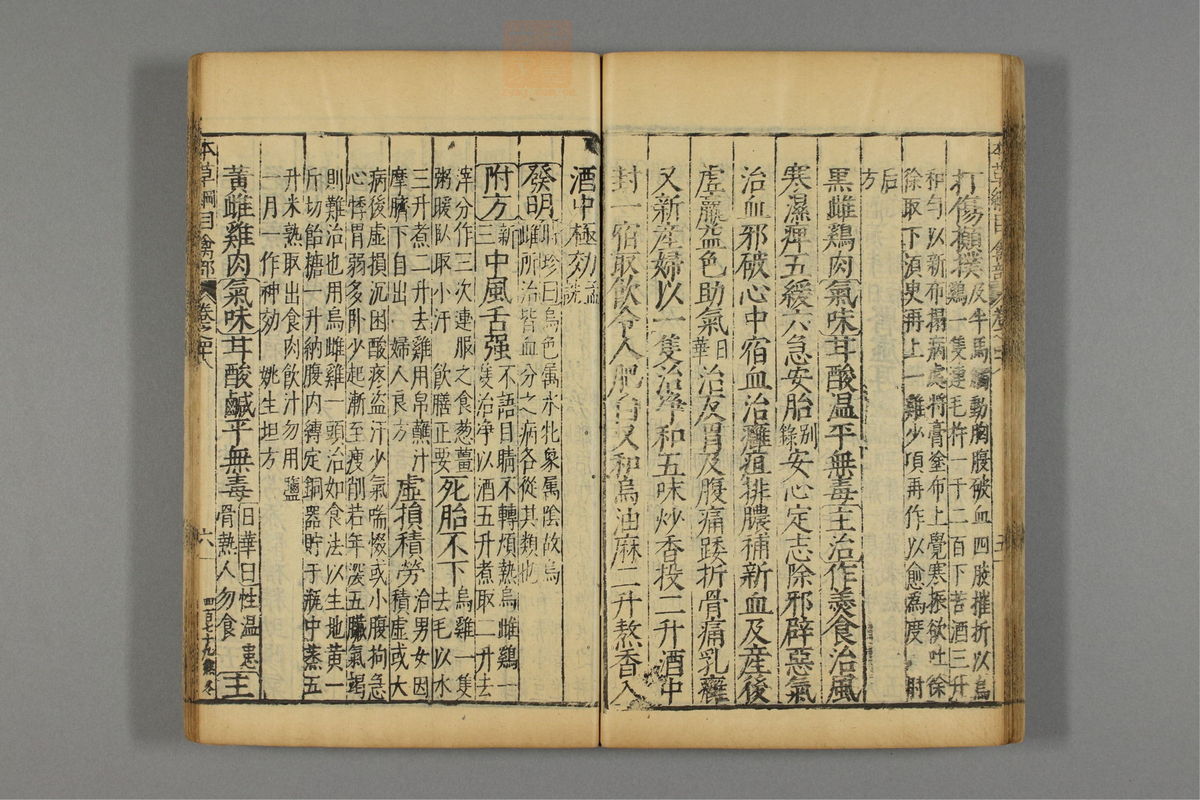 本草綱目 禽部 卷之四十八 五
打傷攧撲及牛馬觸動胸腹破血四肢摧折以烏
雞一隻連毛杵一千二百下苦酒三升
和勻以新布搨病處將膏塗布上覺寒振欲吐徐
徐取下須臾再上一雞少頃再作以愈為度 肘
后
方
黑雌鷄肉氣味甘酸温平無毒主治作羮食治風
寒濕痺五緩六急安胎別錄安心定志除邪辟惡氣
治血邪破心中宿血治癰疽排膿補新血及産後
虛羸益色助氣日華治反胃及腹痛踒折骨痛乳癰
又新産婦以一隻治淨和五味炒香投二升酒中
封一宿取飲令人肥白又和烏油麻二升熬香入
酒中極効孟詵
發明時珍曰烏色屬水牝象屬陰故烏
雌所治皆血分之病各從其類也
附方新三中風舌强不語目睛不轉煩熱烏雌鷄一
隻治淨以酒五升煮取二升去
滓分作三次連服之食葱薑
粥暖臥取小汗 飲膳正要死胎不下烏雞一隻
去毛以水
三升煮二升去雞用帛蘸汁
摩臍下自出 婦人良方虛損積勞治男女因
積虛或大
病後虛損沉困酸疼盗汗少氣喘惙或小腹拘急
心悸胃弱多卧少起漸至瘦削若年深五臟氣竭
則難治也用烏雌雞一頭治如食法以生地黃一
斤切飴糖一升納腹内縳定銅器貯于瓶中蒸五
升米熟取出食肉飲汁勿用鹽
一月一作神効 姚生坦方
黃雌雞肉氣味甘酸鹹平無毒日華曰性温患
骨熱人勿食主
本草綱目 禽部 卷之四十八 六